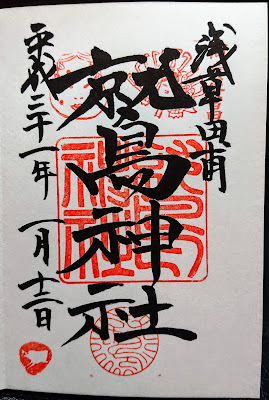 浅草田甫
鷲神社
平成三十一年 一月十二日